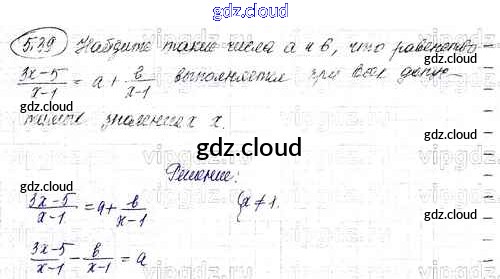 gdz.cloud
5.39 Найдите такие числа a и b, что равенство
(3x-5)/(x-1) = a + b/(x-1) выполняется при всех допус-
тимых значениях x.
gdz.cloud
gdz.cloud
gdz.cloud
gdz.cloud
Решение:
(3x-5)/(x-1) = a + b/(x-1) {x ≠ 1.
gdz.cloud
gdz.cloud
(3x-5)/(x-1) - b/(x-1) = a